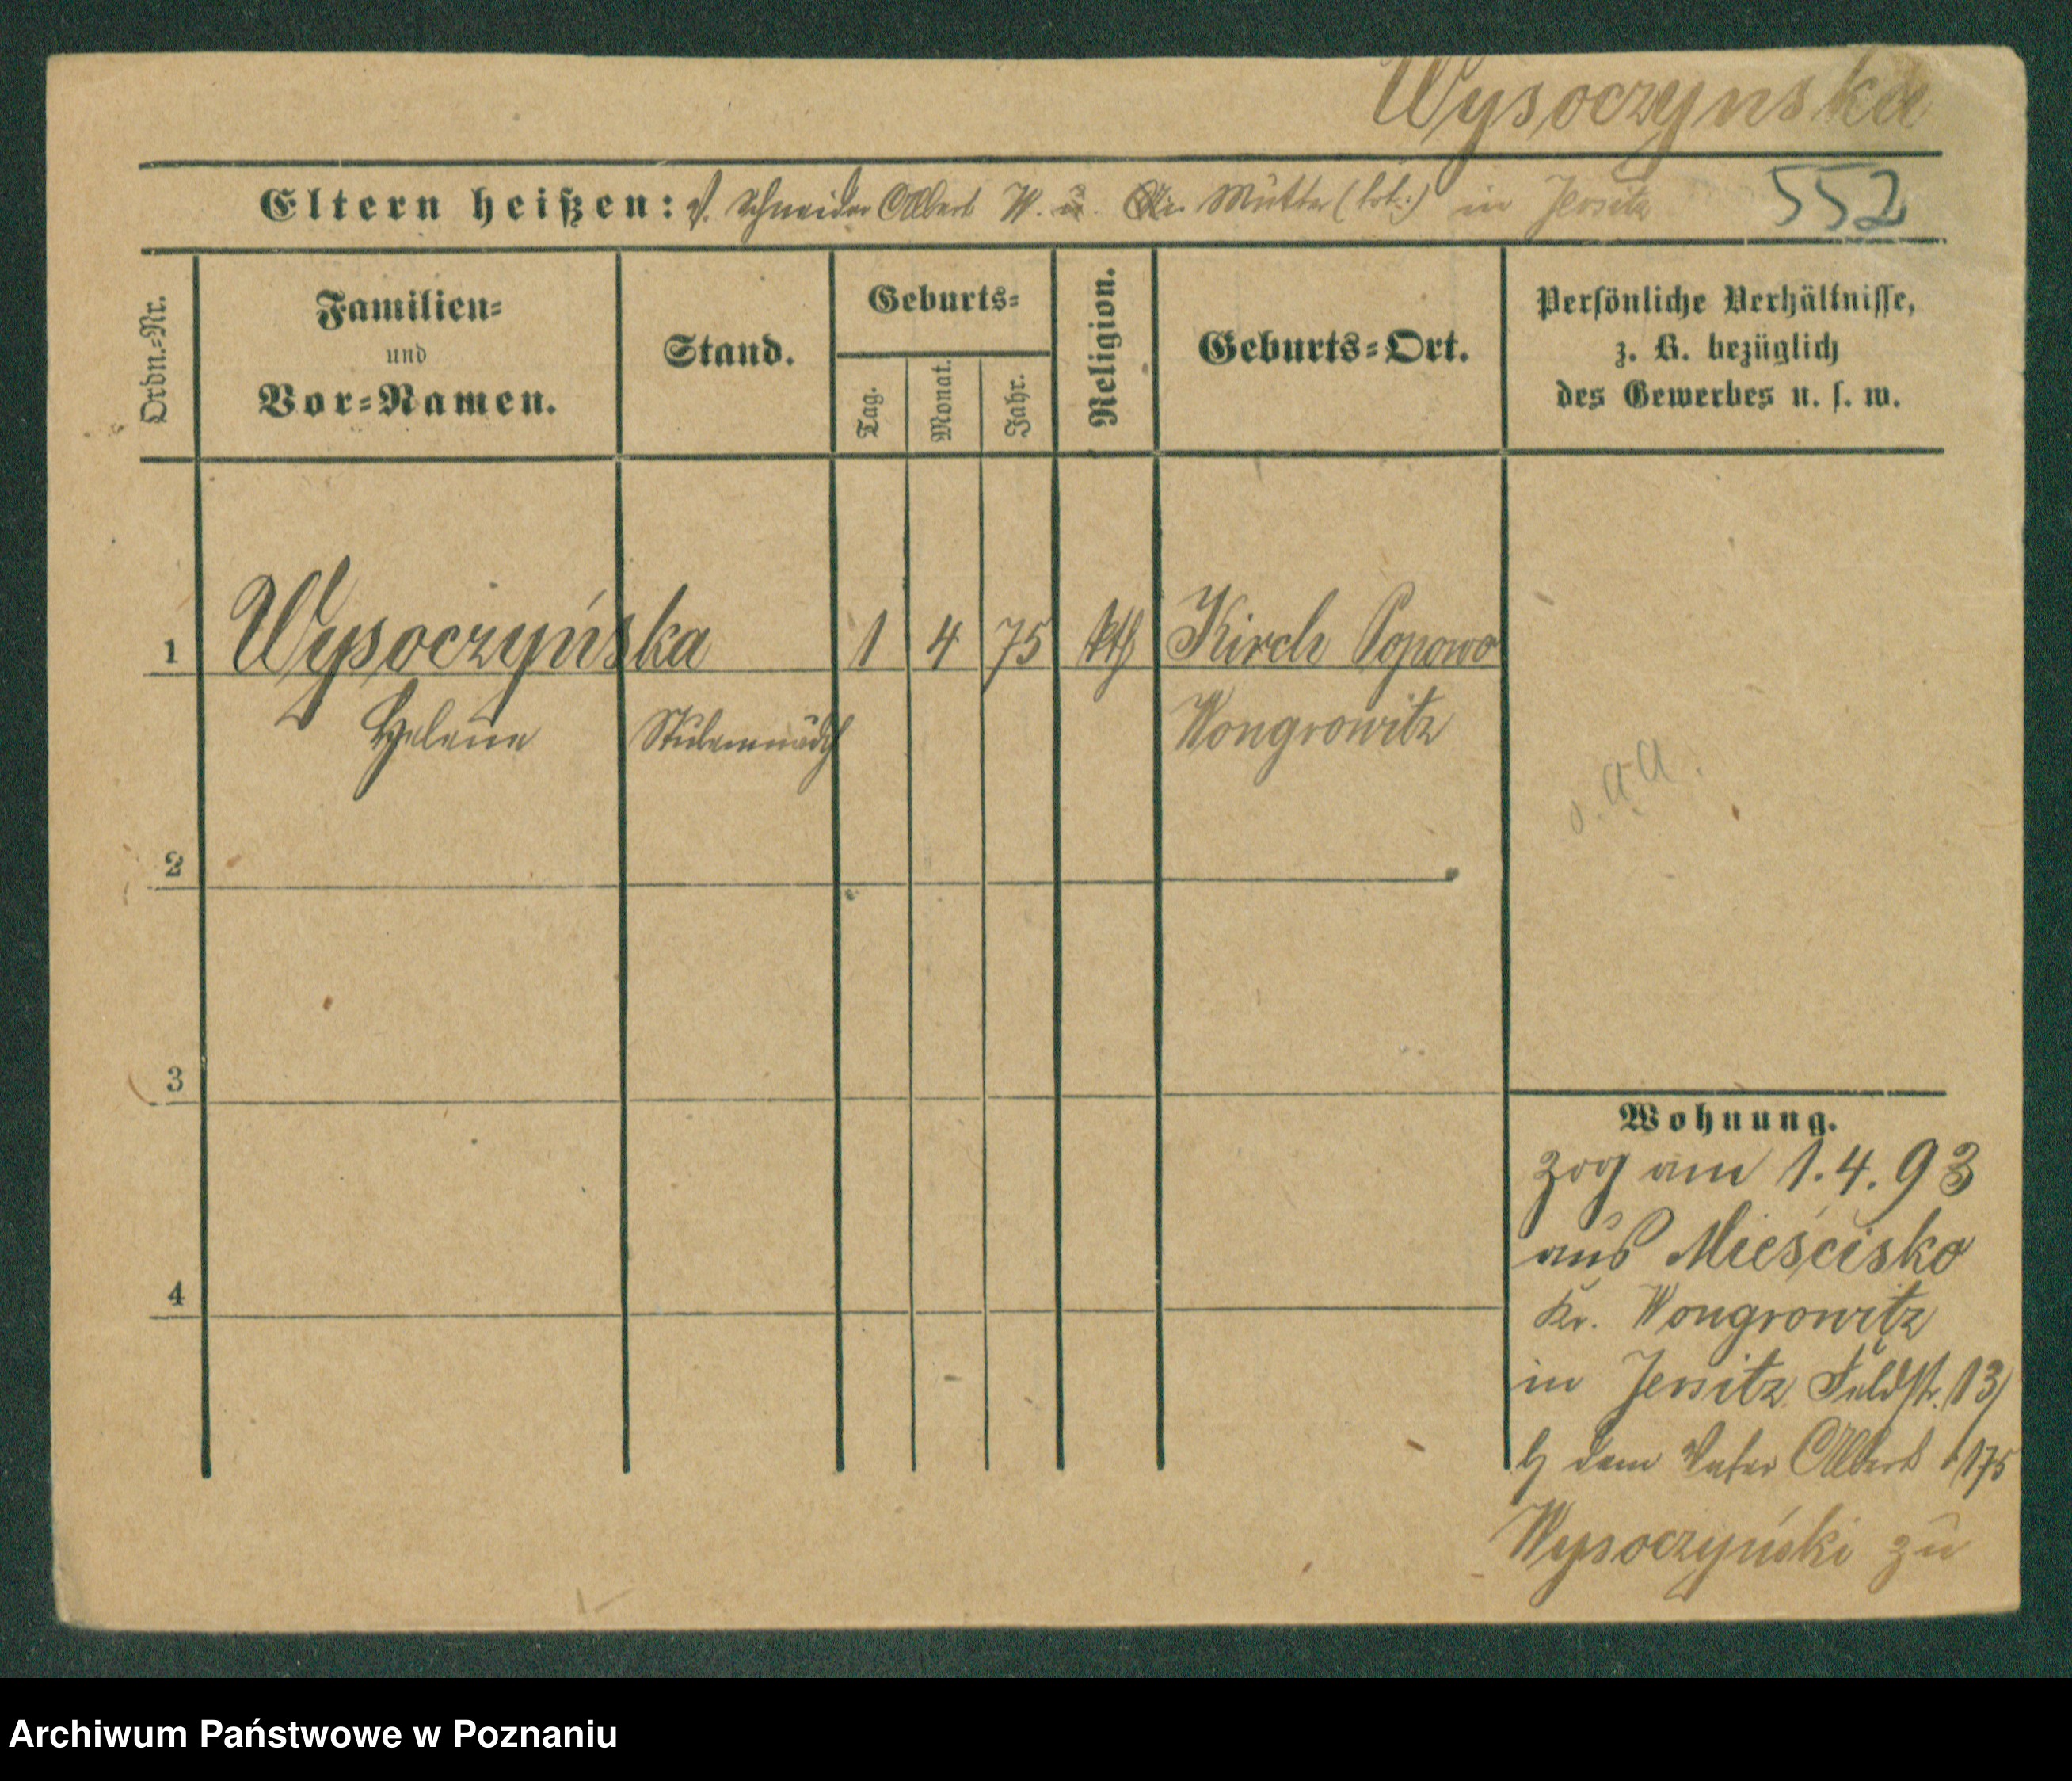 Wysoczynska
Eltern heißen: d. Schneider Albert W. u. Mutter in Jersitz
552
Ordn.-Nr.
Familien-
und
Vor-Namen.
Stand.
Geburts-
Tag.
Monat.
Jahr.
Religion.
Geburts-Ort.
Persönliche Verhältnisse,
z. B. bezüglich
des Gewerbes u. s. w.
1 Wysoczyńska 1 4 75 kth Kirch Popowo
Helene Stubenmädch Wongrowitz
2
3
4
Wohnung.
zog am 1.4.93
aus Mieścisko
Kr. Wongrowitz
in Jersitz Feldstr. 13
b dem Vater Albert 175
Wysoczyński zu
Archiwum Państwowe w Poznaniu